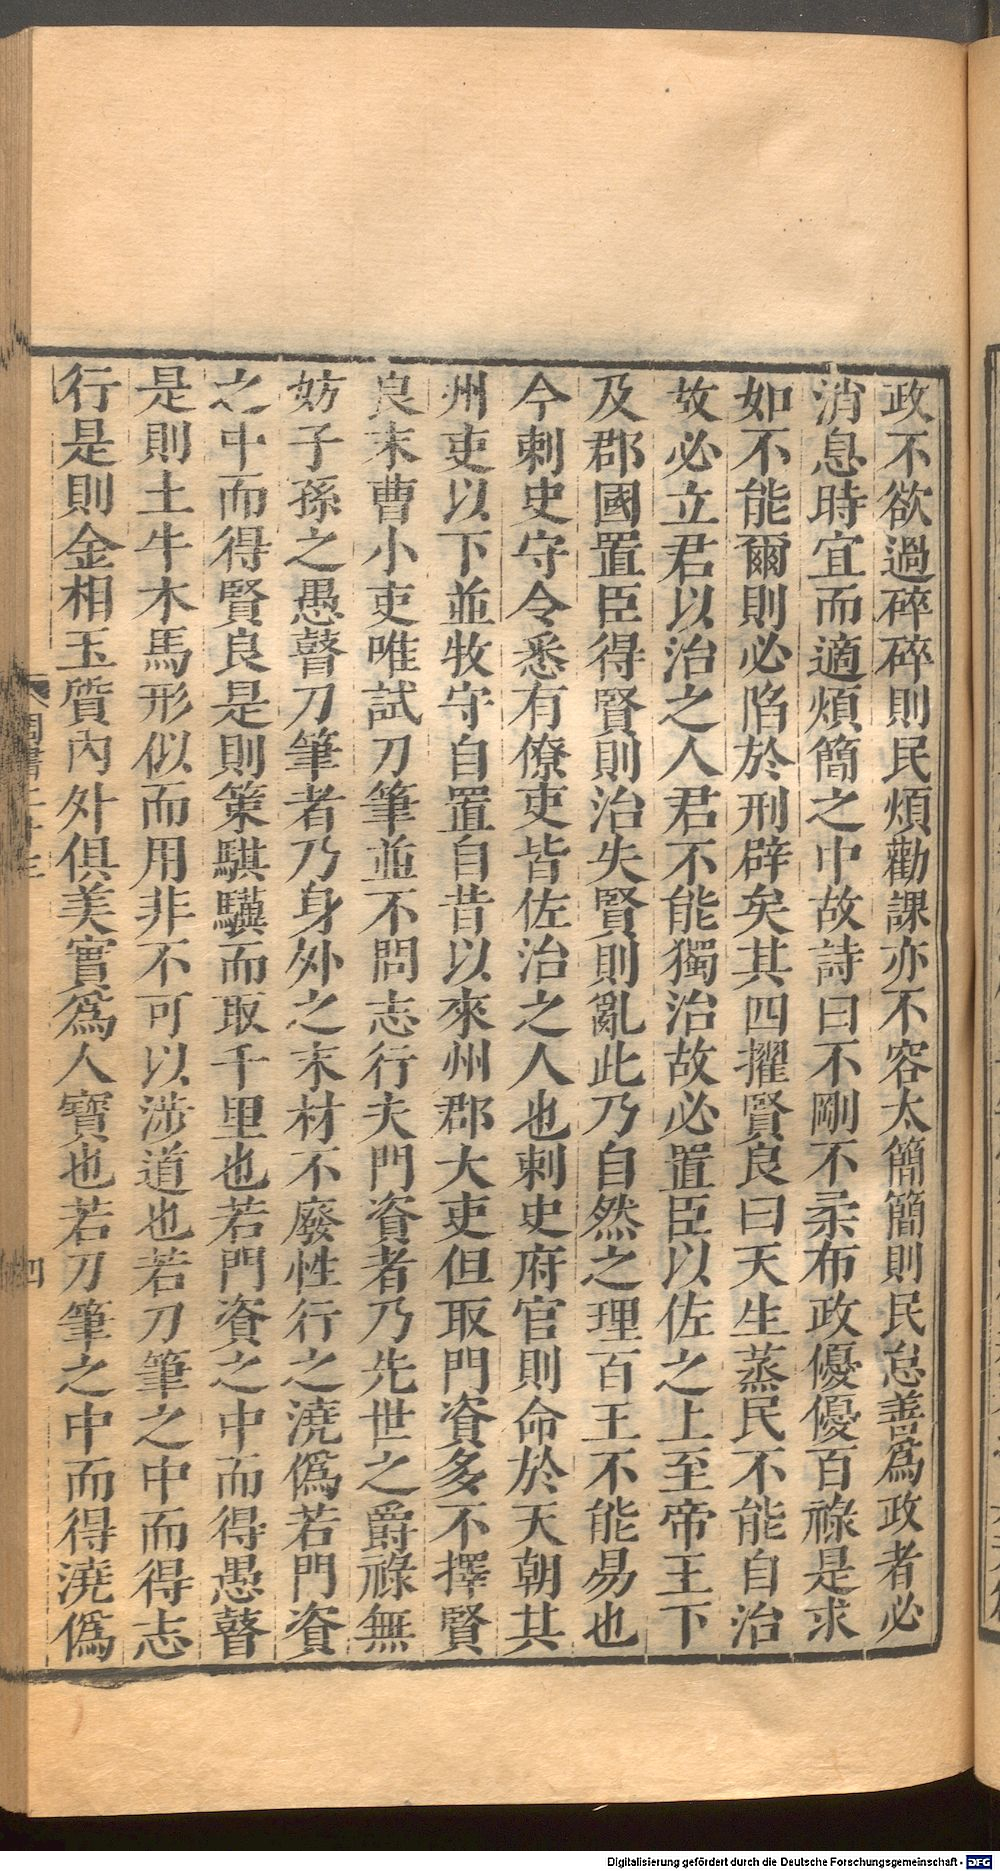 政不欲過碎碎則民煩勸課亦不容太簡簡則民怠善爲政者必
消息時宜而適煩簡之中故詩曰不剛不柔布政優優百祿是求
如不能爾則必陷於刑辟矣其四擢賢良曰天生蒸民不能自治
故必立君以治之人君不能獨治故必置臣以佐之上至帝王下
及郡國置臣得賢則治失賢則亂此乃自然之理百王不能易也
今刺史守令悉有僚吏皆佐治之人也刺史府官則命於天朝其
州吏以下並牧守自置自昔以來州郡大吏但取門資多不擇賢
良末曹小吏唯試刀筆並不問志行夫門資者乃先世之爵祿無
妨子孫之愚瞽刀筆者乃身外之末材不廢性行之澆僞若門資
之中而得賢良是則策騏驥而取千里也若門資之中而得愚瞽
是則土牛木馬形似而用非不可以涉道也若刀筆之中而得志
行是則金相玉質內外俱美實爲人寶也若刀筆之中而得澆僞
四
Digitalisierung gefördert durch die Deutsche Forschungsgemeinschaft - DFG